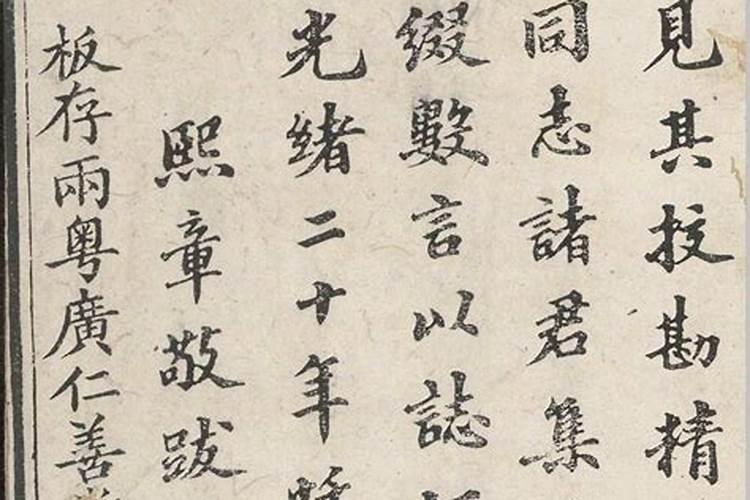 見其挍勘精
同志諸君集
綴數言以誌
光緒二十年
熙章敬跋
板存兩粤廣仁善